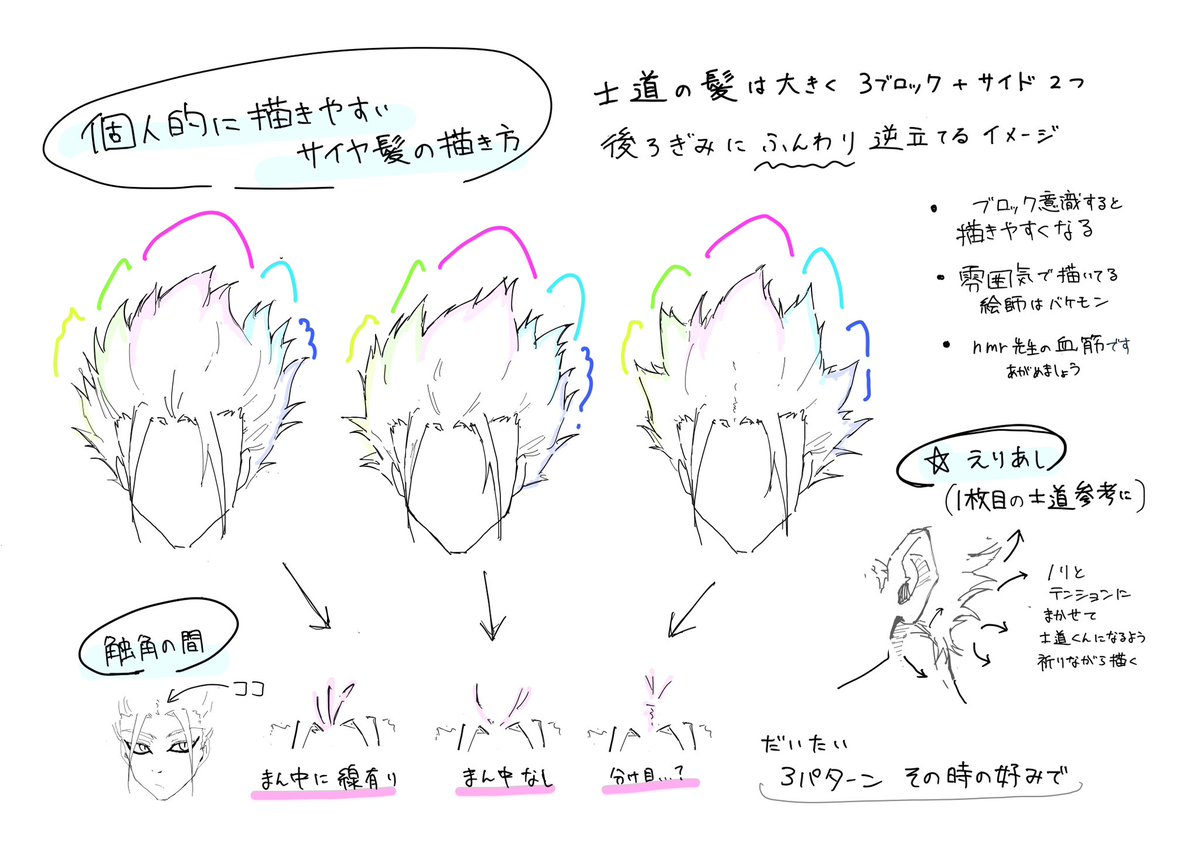 個人的に描きやすい
サイヤ髪の描き方
士道の髪は大きく 3ブロック + サイド 2つ
後ろぎみに ふんわり 逆立てる イメージ
• ブロック意識すると
描きやすくなる
• 雰囲気で描いてる
絵師はバケモン
• nmr先生の血筋です
あがめましょう
☆ えりあし
(1枚目の士道参考に)
ノリと
テンションに
まかせて
士道くんになるよう
祈りながら描く
触角の間
ココ
まん中に線有り
まん中なし
分け目…?
だいたい
3パターン その時の好みで